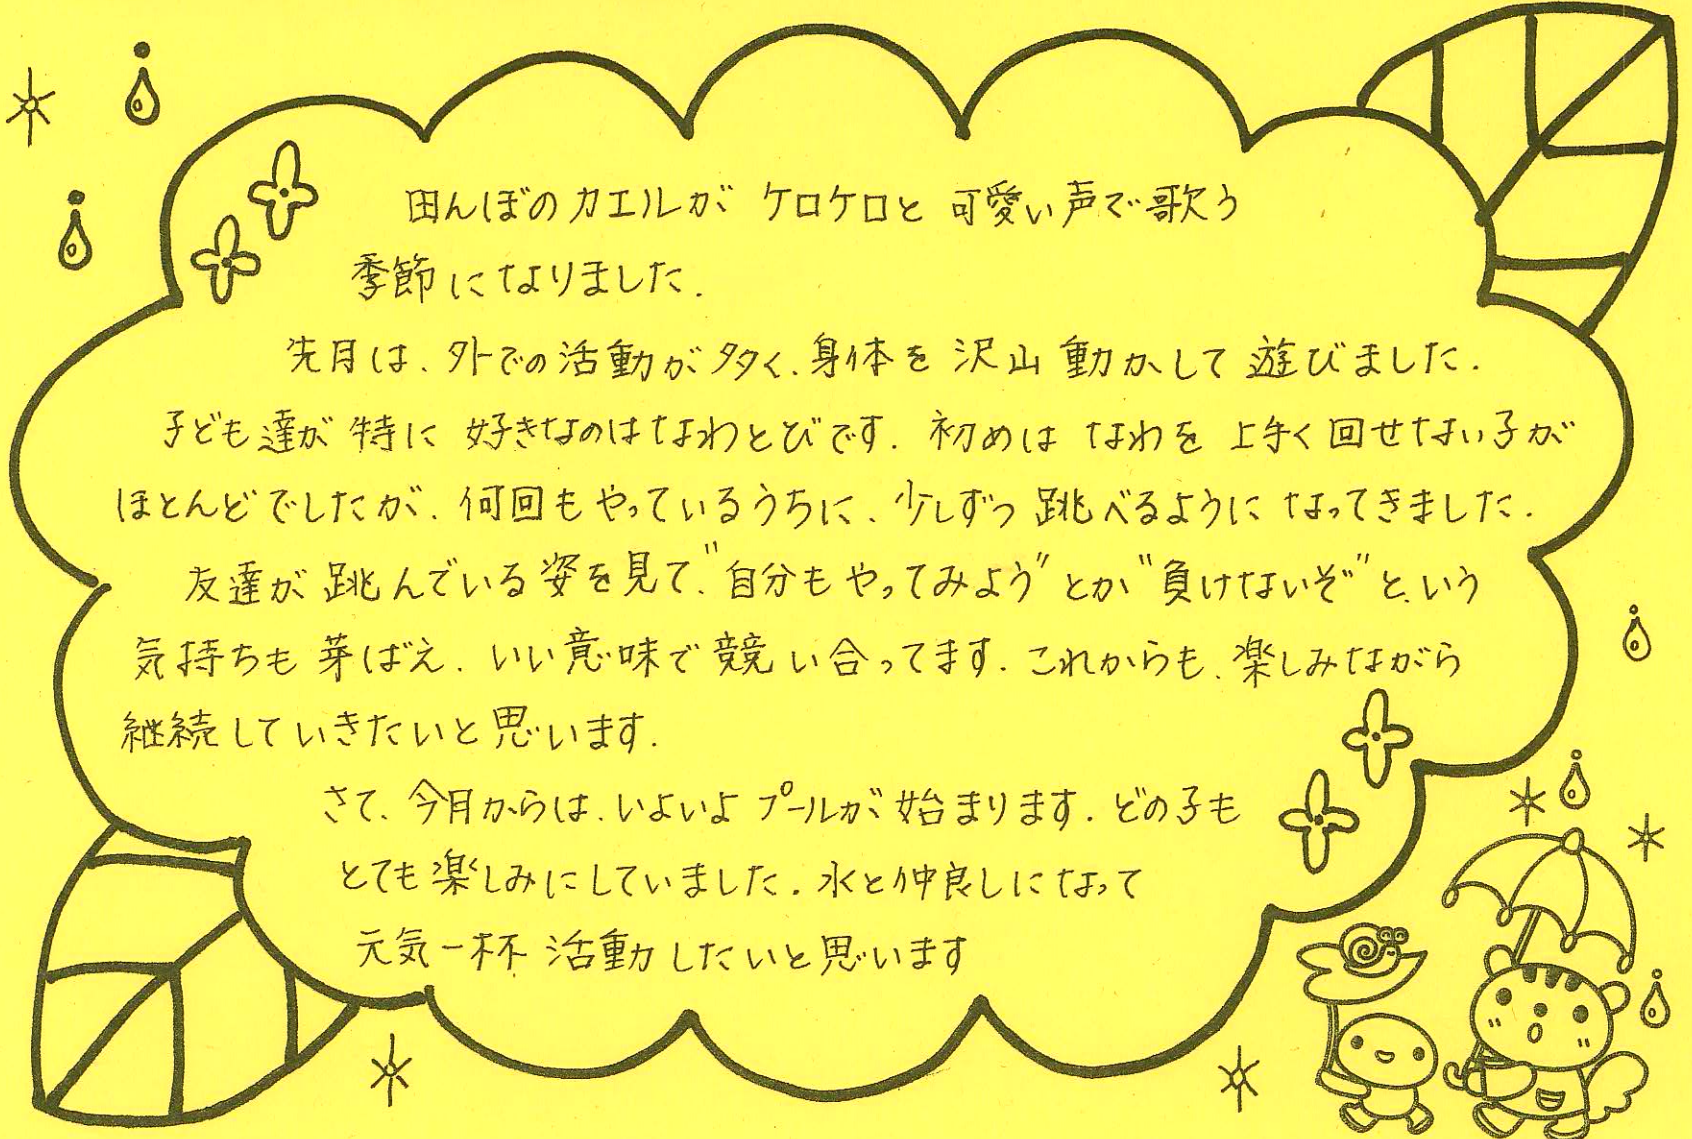 田んぼのカエルが ケロケロと 可愛い声で歌う
季節になりました.
先月は、外での活動が多く、身体を沢山動かして 遊びました.
子ども達が 特に 好きなのはなわとびです. 初めは なわを 上手く回せない子が
ほとんどでしたが、何回もやっているうちに、少しずつ 跳べるようになってきました.
友達が 跳んでいる姿を見て、"自分もやってみよう"とか"負けないぞ"という
気持ちも 芽ばえ、いい意味で競い合ってます. これからも、楽しみながら
継続していきたいと思います.
さて、今月からは、いよいよ プールが始まります. どの子も
とても楽しみにしていました. 水と仲良しになって
元気一杯 活動したいと思います